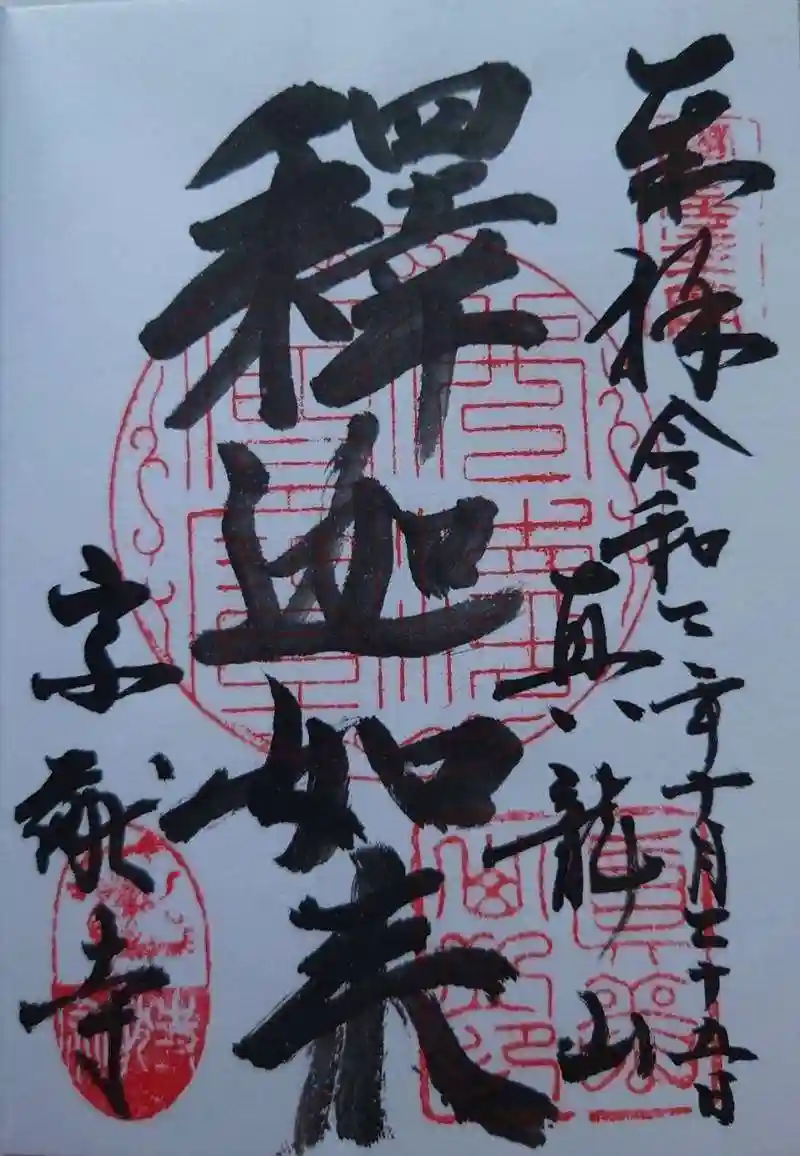 奉拝 令和二年十月二十九日
真龍山
釋迦如来
宗猷寺